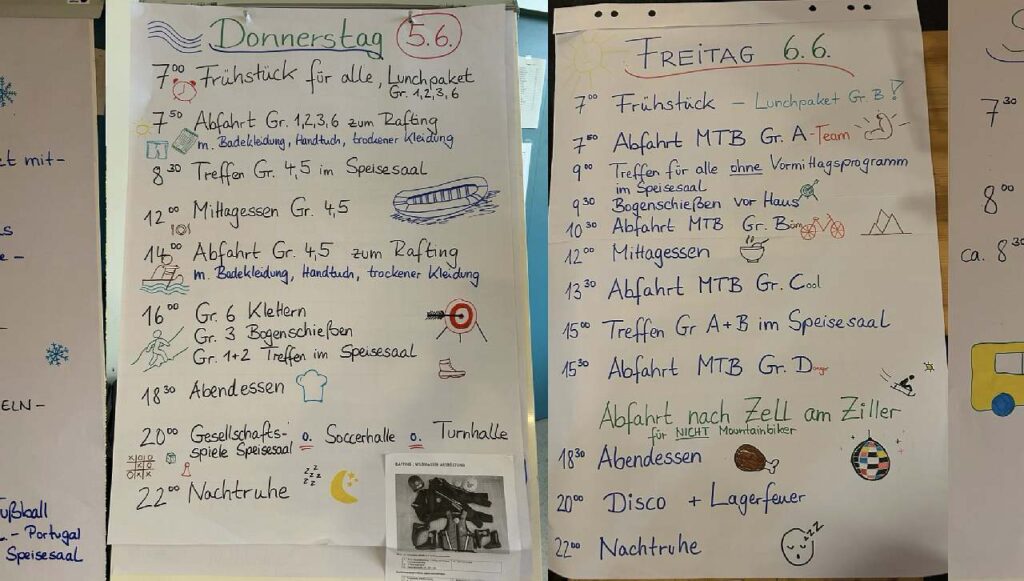 et mit-
ELN-
ußball
- Portugal
Speisesaal
Donnerstag 5.6.
7⁰⁰ Frühstück für alle, Lunchpaket
Gr. 1,2,3,6
7⁵⁰ Abfahrt Gr. 1,2,3,6 zum Rafting
m. Badekleidung, Handtuch, trockener Kleidung
8³⁰ Treffen Gr. 4,5 im Speisesaal
12⁰⁰ Mittagessen Gr. 4,5
14⁰⁰ Abfahrt Gr. 4,5 zum Rafting
m. Badekleidung, Handtuch, trockener Kleidung
16⁰⁰ Gr. 6 Klettern
Gr. 3 Bogenschießen
Gr. 1+2 Treffen im Speisesaal
18³⁰ Abendessen
20⁰⁰ Gesellschafts-
spiele Speisesaal o. Soccerhalle o. Turnhalle
22⁰⁰ Nachtruhe
FREITAG 6.6.
7⁰⁰ Frühstück – Lunchpaket Gr. B!
7⁵⁰ Abfahrt MTB Gr. A-Team
9⁰⁰ Treffen für alle ohne Vormittagsprogramm
im Speisesaal
9³⁰ Bogenschießen vor Haus
10³⁰ Abfahrt MTB Gr. Bör
12⁰⁰ Mittagessen
13³⁰ Abfahrt MTB Gr. Cool
15⁰⁰ Treffen Gr A+B im Speisesaal
15³⁰ Abfahrt MTB Gr. Danger
Abfahrt nach Zell am Ziller
für NICHT Mountainbiker
18³⁰ Abendessen
20⁰⁰ Disco + Lagerfeuer
22⁰⁰ Nachtruhe
7³⁰
8⁰⁰
ca. 8³⁰